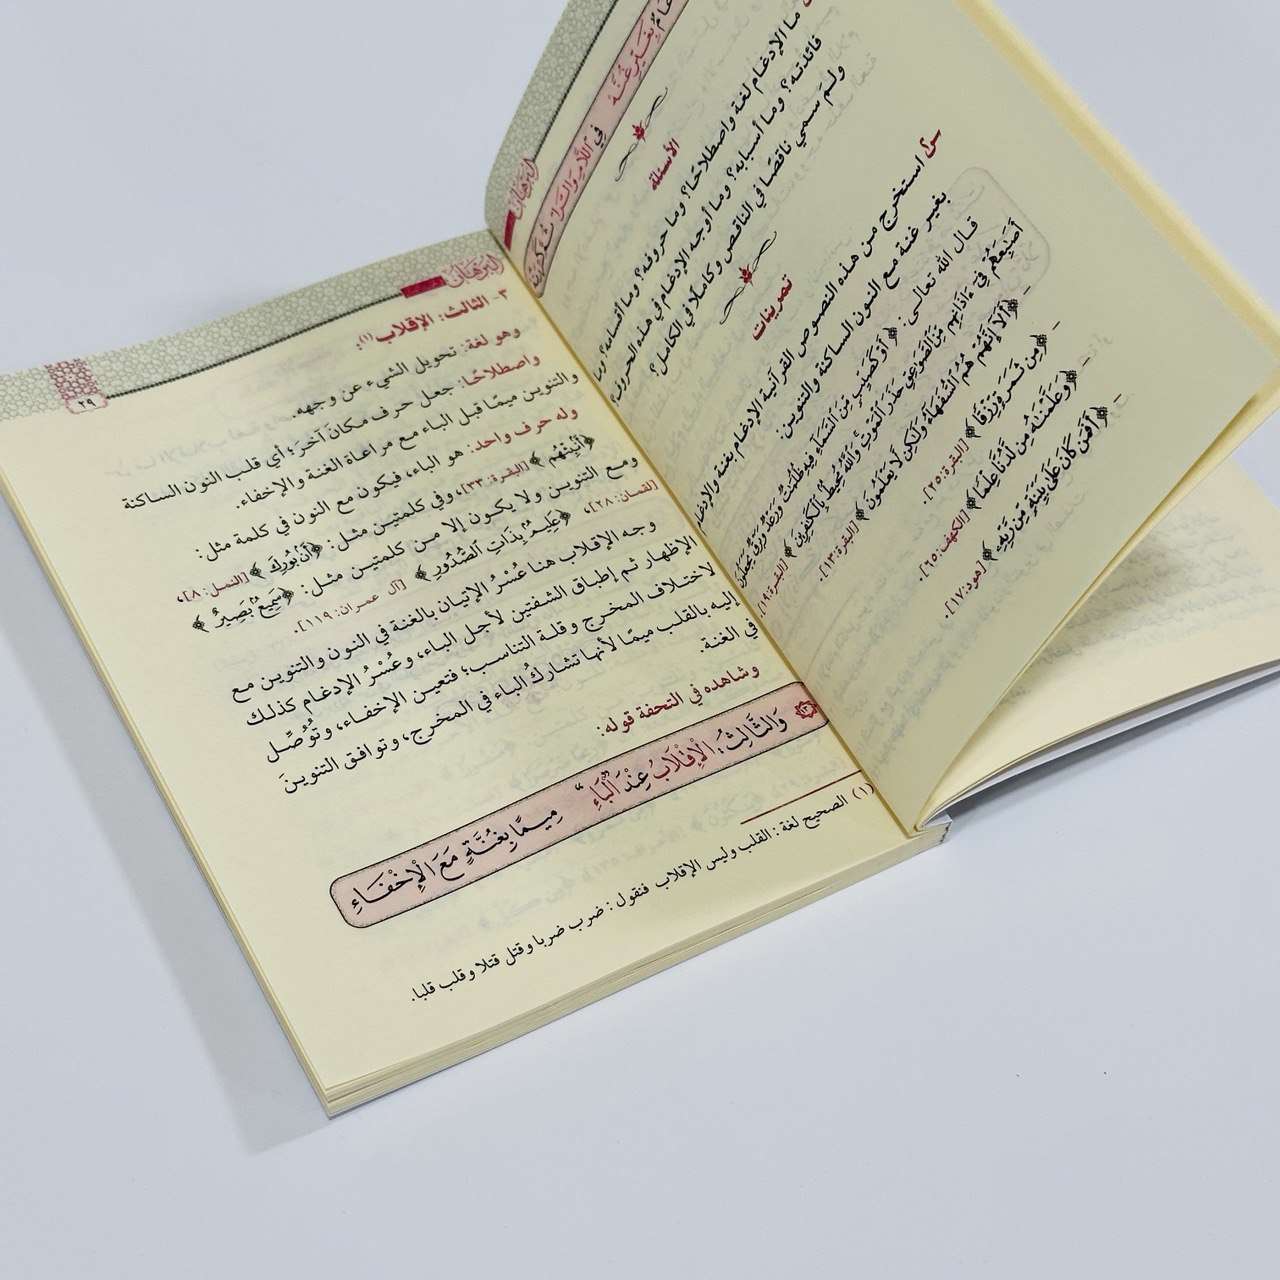 البرهان
في اللام والرا
الأسئلة
ما الإدغام لغة واصطلاحًا؟ وما حروفه؟ وما أقسامه؟ وما
فائدته؟ وما أسبابه؟ وما أوجه الإدغام في هذه الحروف؟
ولم سمي ناقصًا في الناقص وكاملًا في الكامل؟
تمرينات
س؟ استخرج من هذه النصوص القرآنية الإدغام بغنة والإدغام
بغير غنة مع النون الساكنة والتنوين:
قال الله تعالى: ﴿أَوْ كَصَيِّبٍ مِّنَ السَّمَاءِ فِيهِ ظُلُمَاتٌ وَرَعْدٌ وَبَرْقٌ يَجْعَلُونَ
أَصَابِعَهُمْ فِي آذَانِهِم مِّنَ الصَّوَاعِقِ حَذَرَ الْمَوْتِ وَاللَّهُ مُحِيطٌ بِالْكَافِرِينَ﴾ [البقرة:١٩].
- ﴿أَلَا إِنَّهُمْ هُمُ السُّفَهَاءُ وَلَٰكِن لَّا يَعْلَمُونَ﴾ [البقرة:١٣].
- ﴿مِن ثَمَرَةٍ رِّزْقًا﴾ [البقرة:٢٥].
- ﴿وَعَلَّمْنَاهُ مِن لَّدُنَّا عِلْمًا﴾ [الكهف:٦٥].
- ﴿أَفَمَن كَانَ عَلَىٰ بَيِّنَةٍ مِّن رَّبِّهِ﴾ [هود:١٧].
البرهان
٢٩
٣- الثالث: الإقلاب(١):
وهو لغة: تحويل الشيء عن وجهه.
واصطلاحًا: جعل حرف مكانَ آخر؛ أي قلب النون الساكنة
والتنوين ميمًا قبل الباء مع مراعاة الغنة والإخفاء.
وله حرف واحد: هو الباء، فيكون مع النون في كلمة مثل:
﴿أَنبِئْهُم﴾ [البقرة:٣٣]، وفي كلمتين مثل: ﴿أَن بُورِكَ﴾ [النمل:٨]،
ومع التنوين ولا يكون إلا من كلمتين مثل: ﴿سَمِيعٌ بَصِيرٌ﴾
[لقمان:٢٨]، ﴿عَلِيمٌ بِذَاتِ الصُّدُورِ﴾ [آل عمران:١١٩].
وجه الإقلاب هنا عُسْرُ الإتيان بالغنة في النون والتنوين مع
الإظهار ثم إطباق الشفتين لأجل الباء، وعُسْرُ الإدغام كذلك
لاختلاف المخرج وقلة التناسب؛ فتعين الإخفاء، وتُوُصِّل
إليه بالقلب ميمًا لأنها تشارك الباء في المخرج، وتوافق التنوينَ
في الغنة.
وشاهده في التحفة قوله:
وَالثَّالِثُ: الْإِقْلَابُ عِنْدَ الْبَاءِ مِيمًا بِغُنَّةٍ مَعَ الْإِخْفَاءِ
(١) الصحيح لغة: القلب وليس الإقلاب فنقول: ضرب ضربا وقتل قتلا وقلب قلبا.